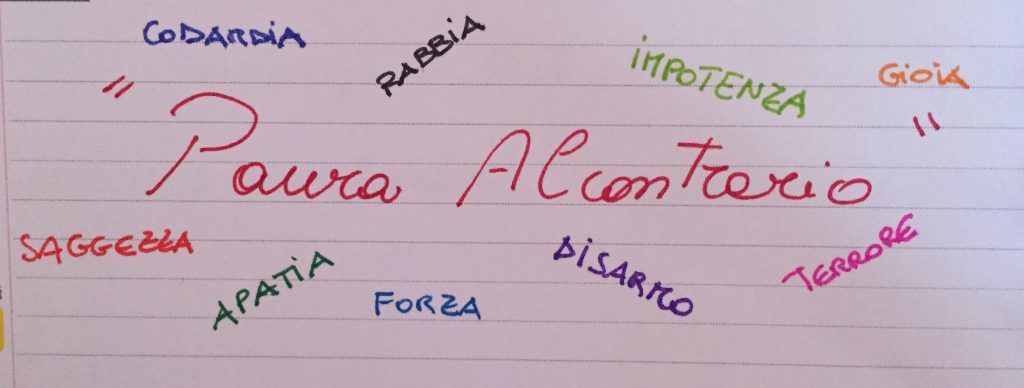 CODARDIA RABBIA IMPOTENZA GIOIA
"Paura Alcontrario"
SAGGEZZA APATIA FORZA DISARMO TERRORE